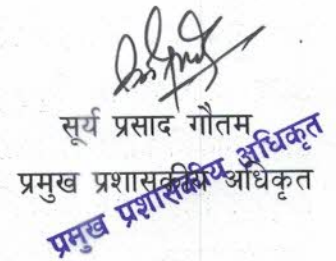 सूर्य प्रसाद गौतम
प्रमुख प्रशासकीय अधिकृत
प्रमुख प्रशासकीय अधिकृत